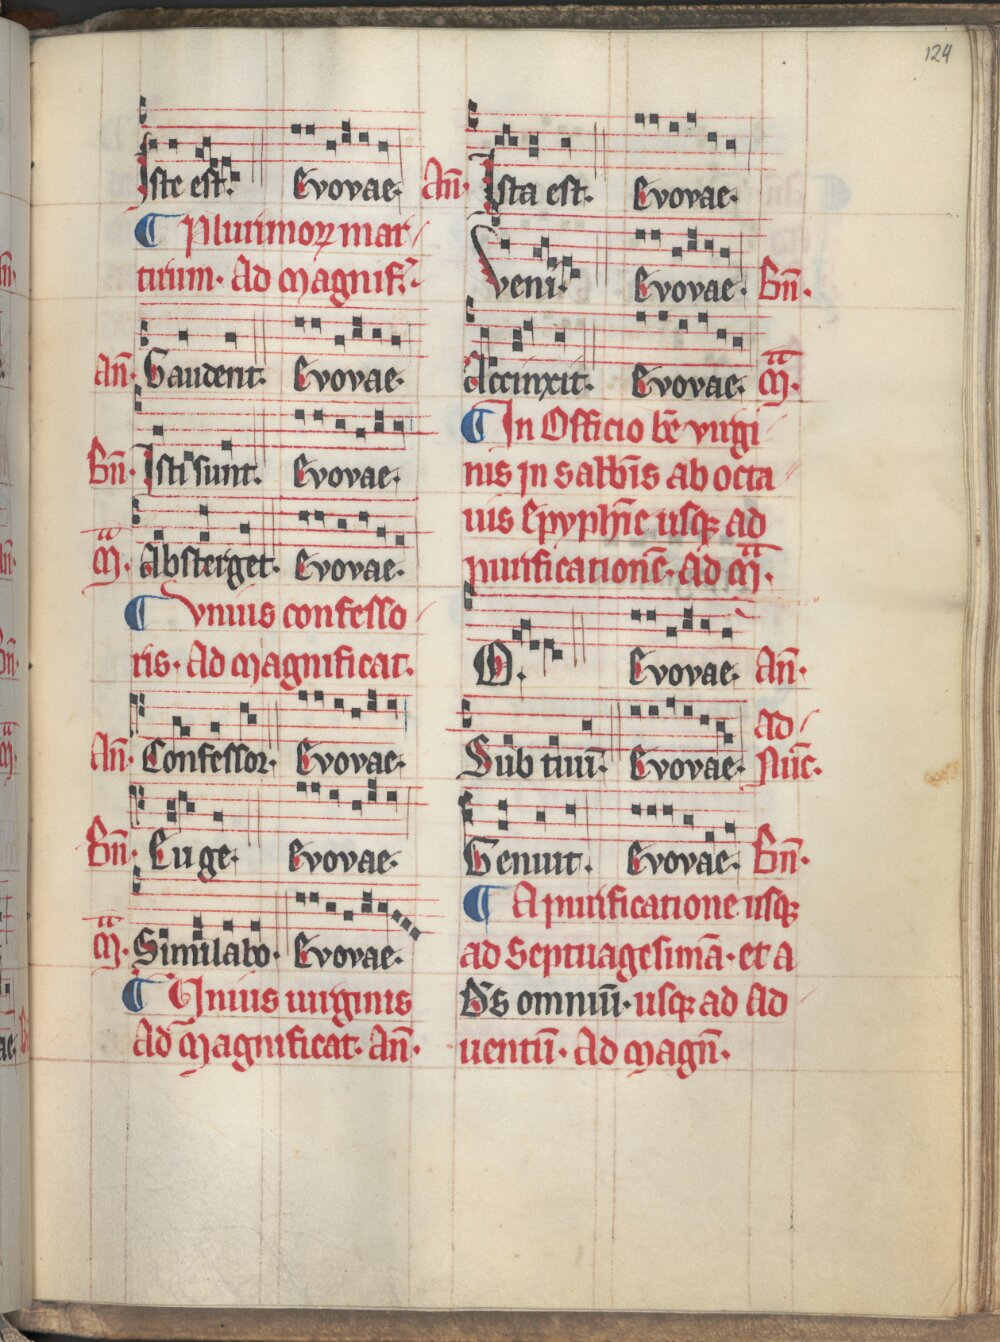 124
Iste est. Evovae. An̄.
¶ Plurimoꝝ mar
tirum. Ad magnif.
An̄. Gaudent. Evovae.
Bn̄. Isti sunt. Evovae.
M̄. Absterget. Evovae.
¶ Vnius confesso
ris. Ad magnificat.
An̄. Confessor. Evovae.
Bn̄. Euge. Evovae.
M̄. Similabo. Evovae.
¶ Vnius uirginis
Ad magnificat. An̄.
Ista est. Evovae.
Veni. Evovae. Bn̄.
Accinxit. Evovae. M̄.
¶ In Officio bē virgi
nis in sabb̄is ab octa
uis Epyph̄ie usqꝫ ad
purificationē. Ad m̄.
O. Evovae. An̄.
Sub tuū. Evovae. ad
Nūc.
Genuit. Evovae. Bn̄.
¶ A purificatione usqꝫ
ad Septuagesimā. et a
O̅s omniū. usqꝫ ad Ad
uentū. Ad magn̄.